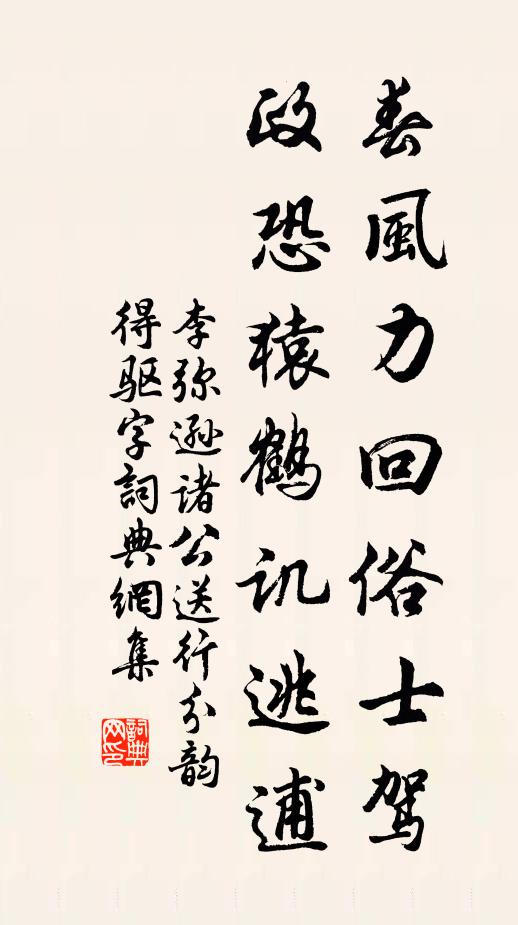 春風力回俗士駕
政恐猿鶴讥逃逋
李弥遜诸公送行分韵
得驱字詞典網集
詞典
网印